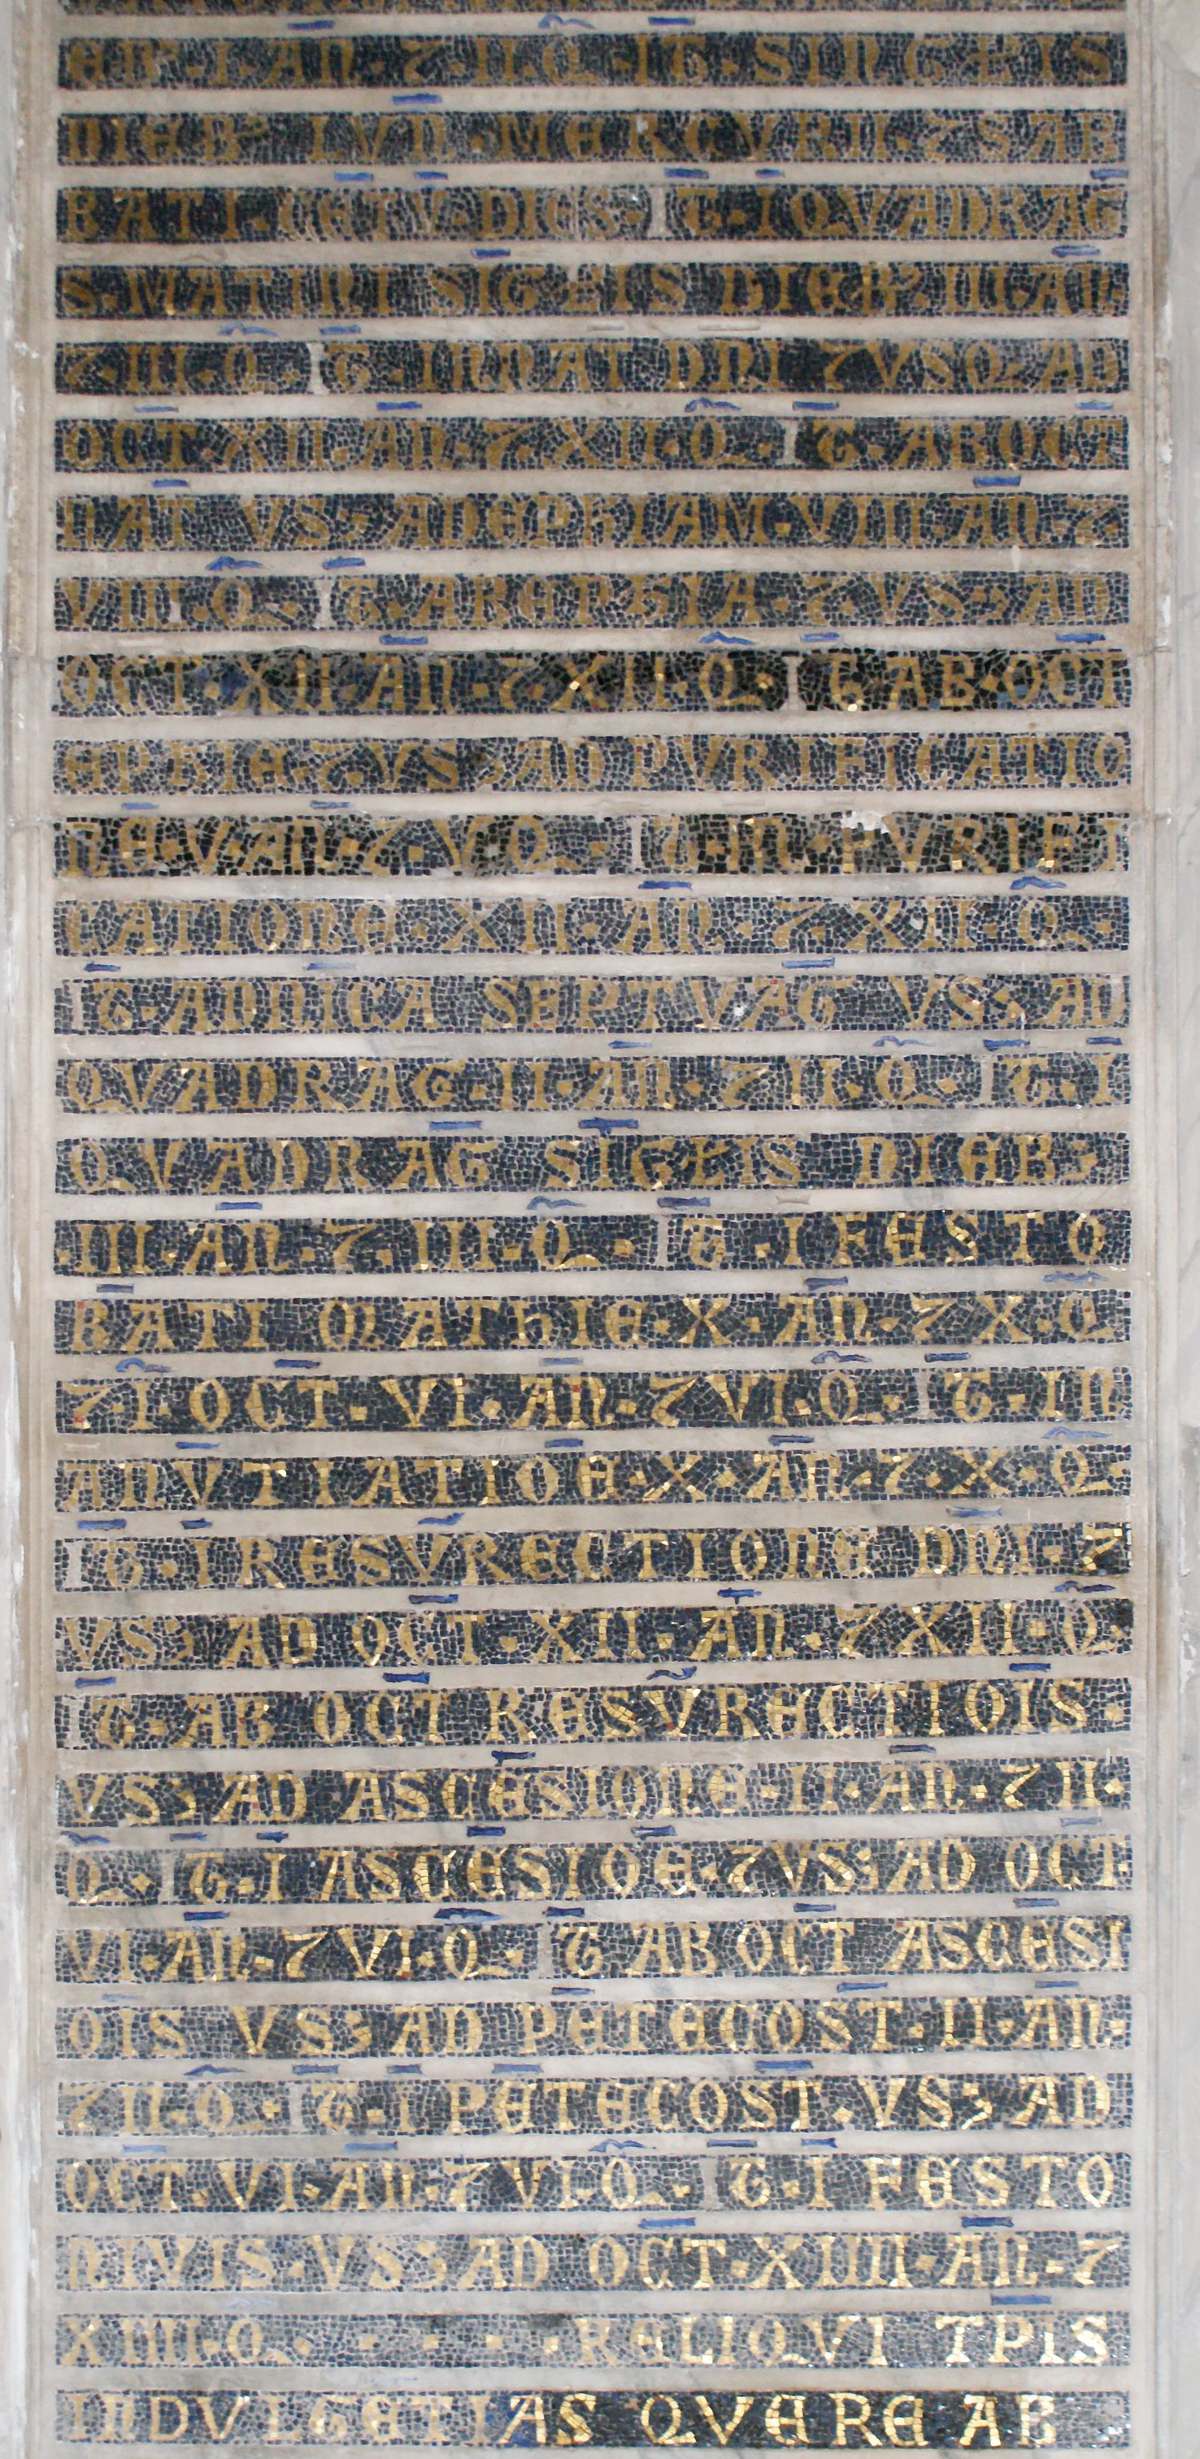 EB · I · AN · 7 · II · Q · IT · SINGLIS
DIEB LVN · MERCVRII · 7 SAB
BATI · CETV · DIES · IT · I QVADRAG
S · MATINI SIGLIS DIEB III · AN
7 · III · Q · IT · IN NAT DNI 7 VSQ AD
OCT XII · AN · 7 · XII · Q · IT · AB OCT
NAT VS; AD EPHIAM · VIII · AN · 7 ·
VIII · Q · IT · AB EPHIA · 7 · VS; AD
OCT · XII · AN · 7 · XII · Q · IT AB · OCT
EPHIE · 7 · VS; AD PVRIFICATIO
NE · V · AN · 7 · V · Q · IT · IN · PVRIFI
CATIONE · XII · AN · 7 · XII · Q ·
IT · A DNICA SEPTVAG VS; AD
QVADRAG · II · AN · 7 II · Q · IT · I
QVADRAG SIGLIS DIEB;
· III · AN · 7 · III · Q · IT · I FESTO
BATI MATHIE · X · AN · 7 X · Q
7 · I · OCT · VI · AN · 7 VI · Q · IT · IN
ANVTIATIOE · X · AN · 7 · X · Q ·
IT · I RESVRECTIONE DNI · 7
VS; AD OCT · XII · AN · 7 XII · Q ·
IT · AB OCT RESVRECTIOIS ·
VS; AD ASCESIONE · II · AN · 7 II ·
Q · IT · I ASCESIOE · 7 VS; AD OCT ·
VI · AN · 7 VI · Q · IT AB OCT ASCESI
OIS VS; AD PETECOST · II · AN ·
7 II · Q · IT · I PETECOST · VS; AD
OCT · VI · AN · 7 VI · Q · IT · I FESTO
NIVIS · VS; AD OCT · XIIII · AN · 7
XIIII · Q · · · · · RELIQVI TPIS
INDVLGETIAS QVERE AB